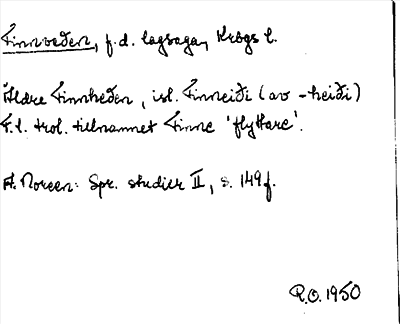 Finnveden, f.d. lagsaga, Krbgs l.
Äldre Finnheden, isl. Finneiði (av -heiði)
F.l. trol. tillnamnet Finne 'flyttare'.
A. Noreen: Spr. studier II, s. 149 f.
R.O. 1950